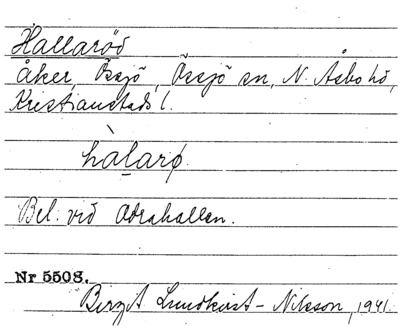 Hallaröd
Åker, Össjö, Össjö sn, N. Åsbo hd,
Kristianstads l.
hàlarø
Bel. vid Adrahallen.
Nr 5508.
Birgit Lundkvist-Nilsson, 1941.